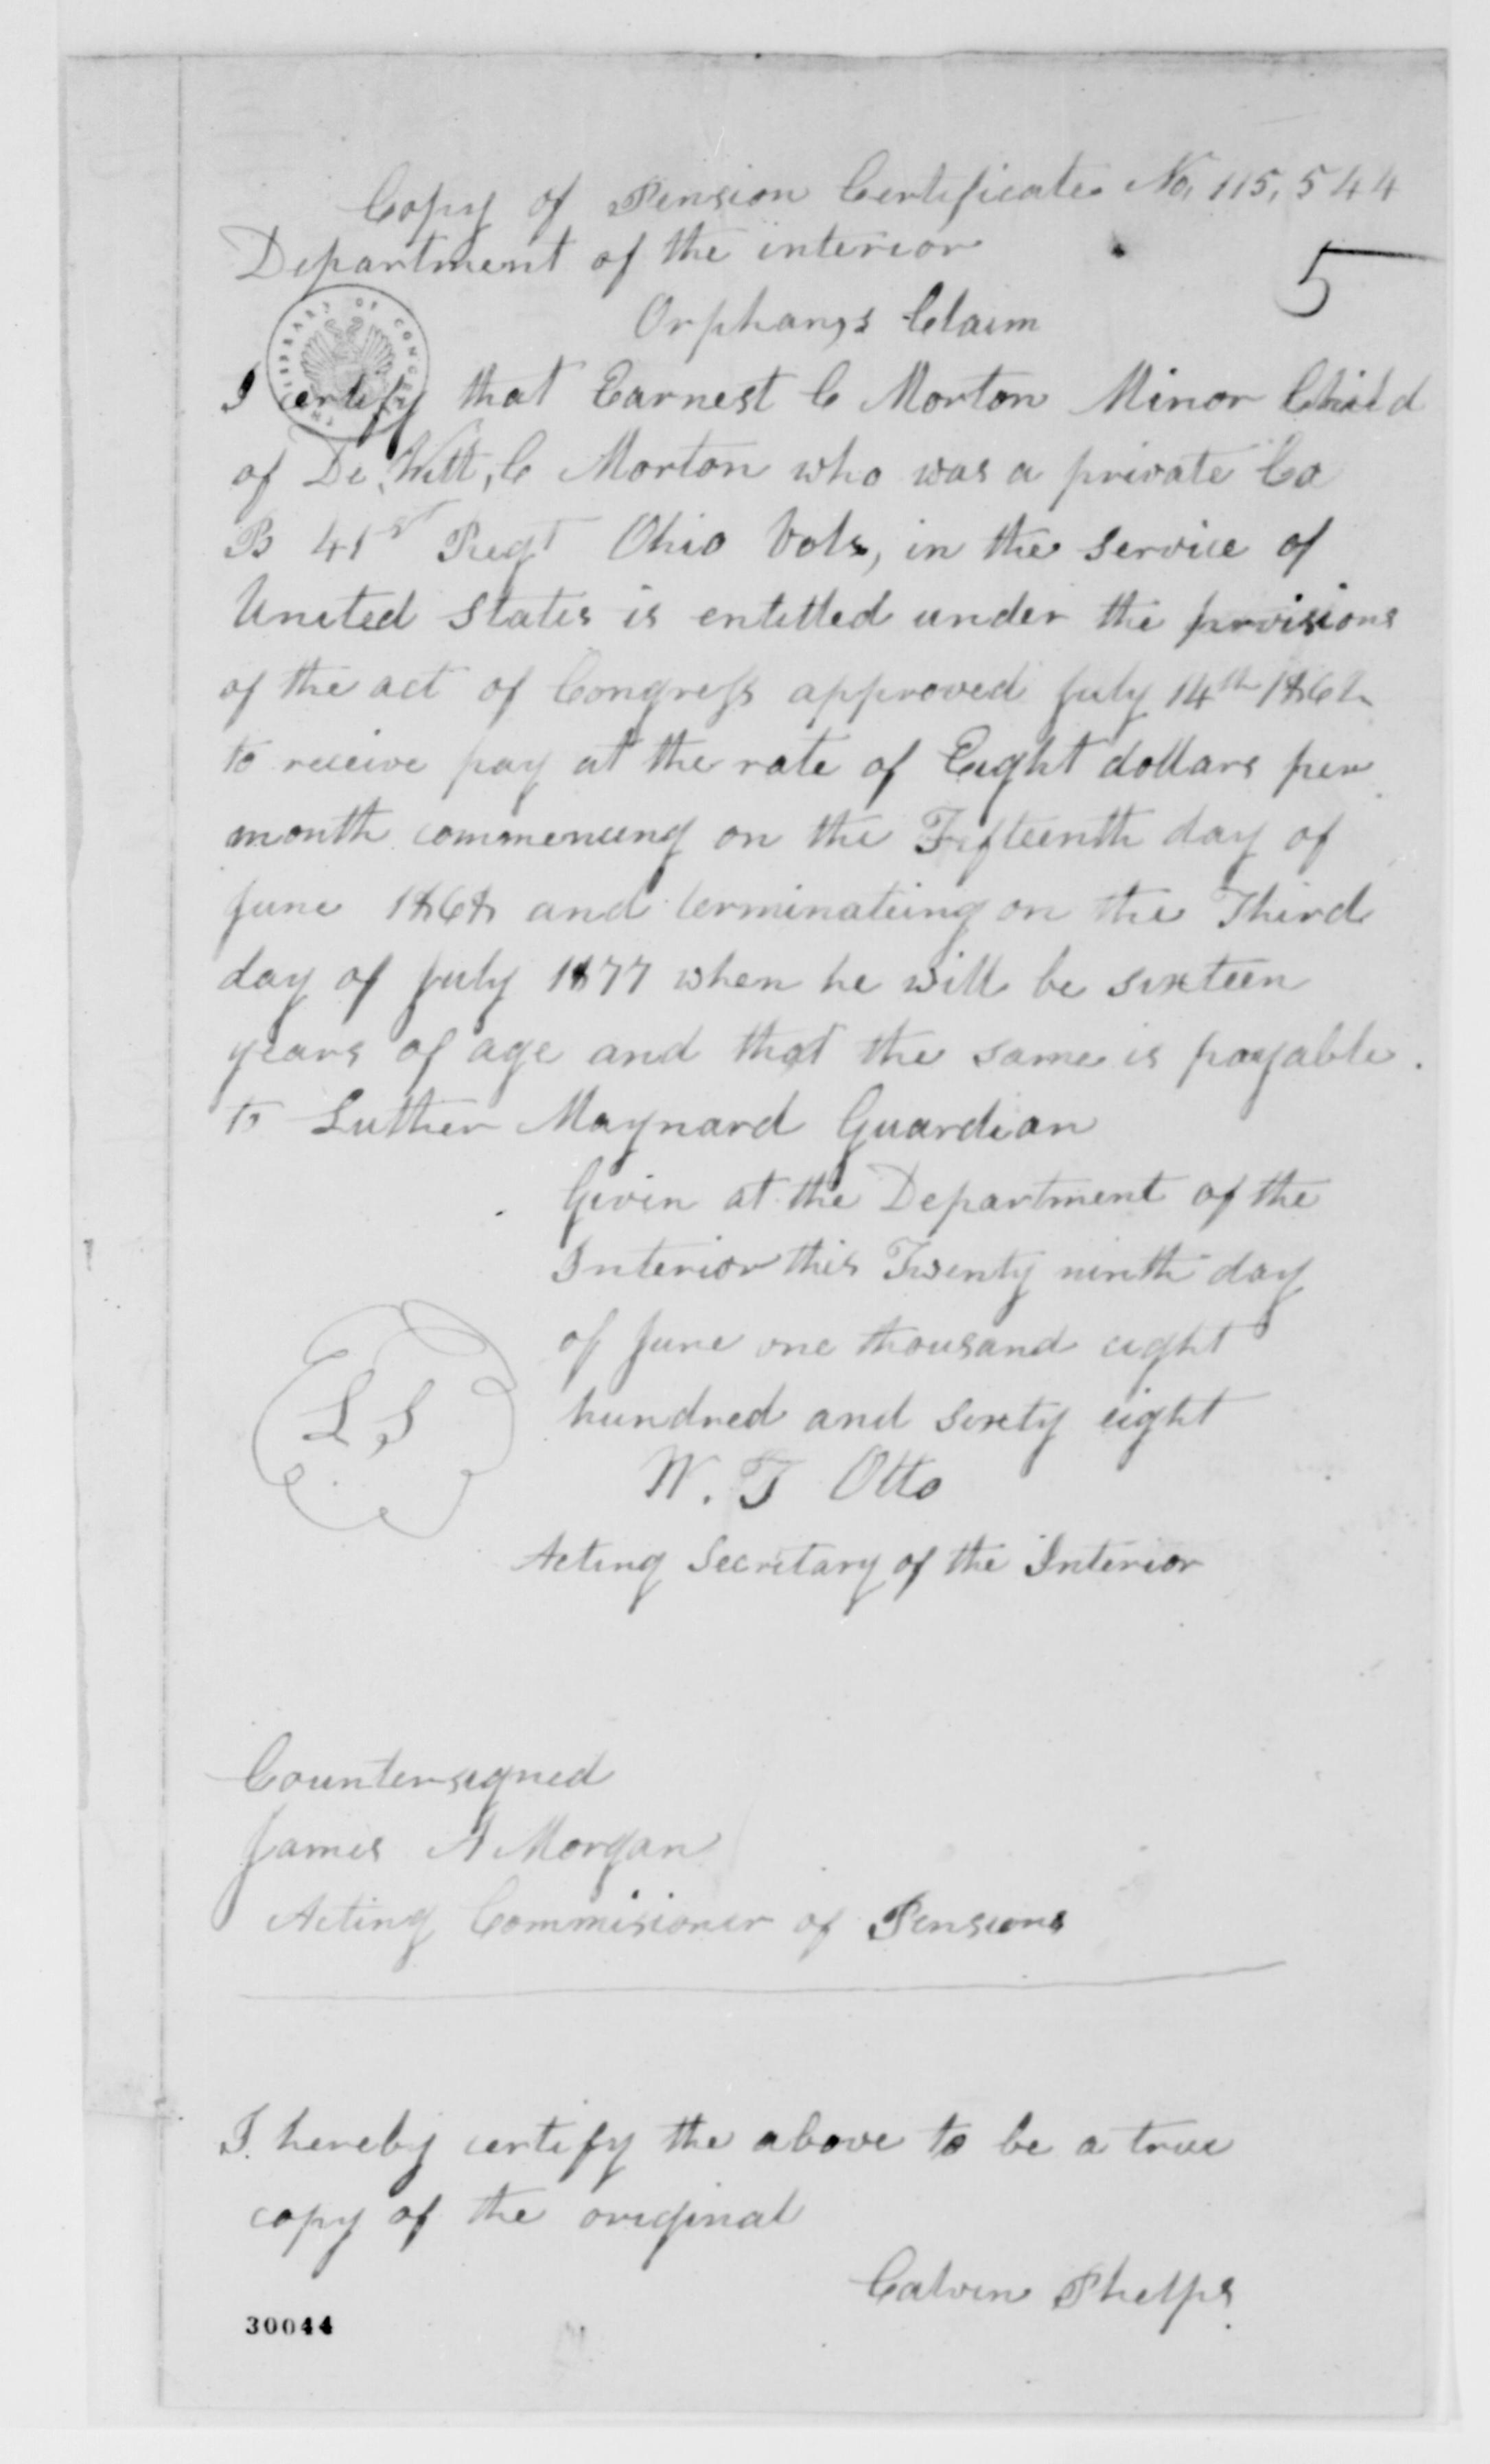 Copy of Pension Certificate No, 115,544
Department of the interior
5
Orphan,s Claim
I certify that Earnest C Morton Minor Child
of De,Witt, C Morton who was a private Co
B 41st Regt Ohio Vols, in the service of
United States is entitled under the provisions
of the act of Congress approved July 14th 1862
to receive pay at the rate of Eight dollars per
month commencing on the Fifteenth day of
June 1868 and terminateing on the Third
day of July 1877 when he will be sixteen
years of age and that the same is payable
to Luther Maynard Guardian
Given at the Department of the
Interior this Twenty ninth day
of June one thousand eight
L S hundred and sixty eight
W. T Otto
Acting Secretary of the Interior
Countersigned
James A Morgan
Acting Commisioner of Pensions
I hereby certify the above to be a true
copy of the original
Calvin Phelps
30044